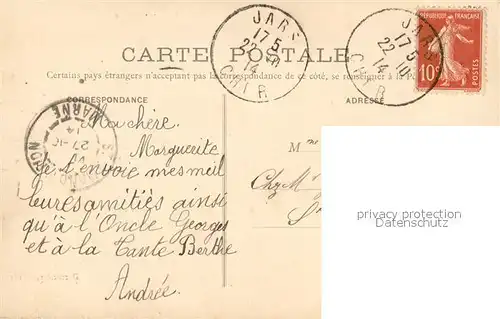 JARS
17 5
22 10
14
CHER
JARS
17 5
22 10
14
CHER
RÉPUBLIQUE FRANÇAISE
10c
POSTES
CARTE POSTALE
Certains pays étrangers n'acceptant pas la correspondance de ce côté, se renseigner à la P
CORRESPONDANCE
ADRESSÉ
MARNE
14
27-10
Ma chère
Marguerite
je t'envoie mes meil
leures amitiés ainsi
qu'à l'Oncle Georges
et à la Tante Berthe
Andrée
Mme
Chz M
privacy protection
Datenschutz